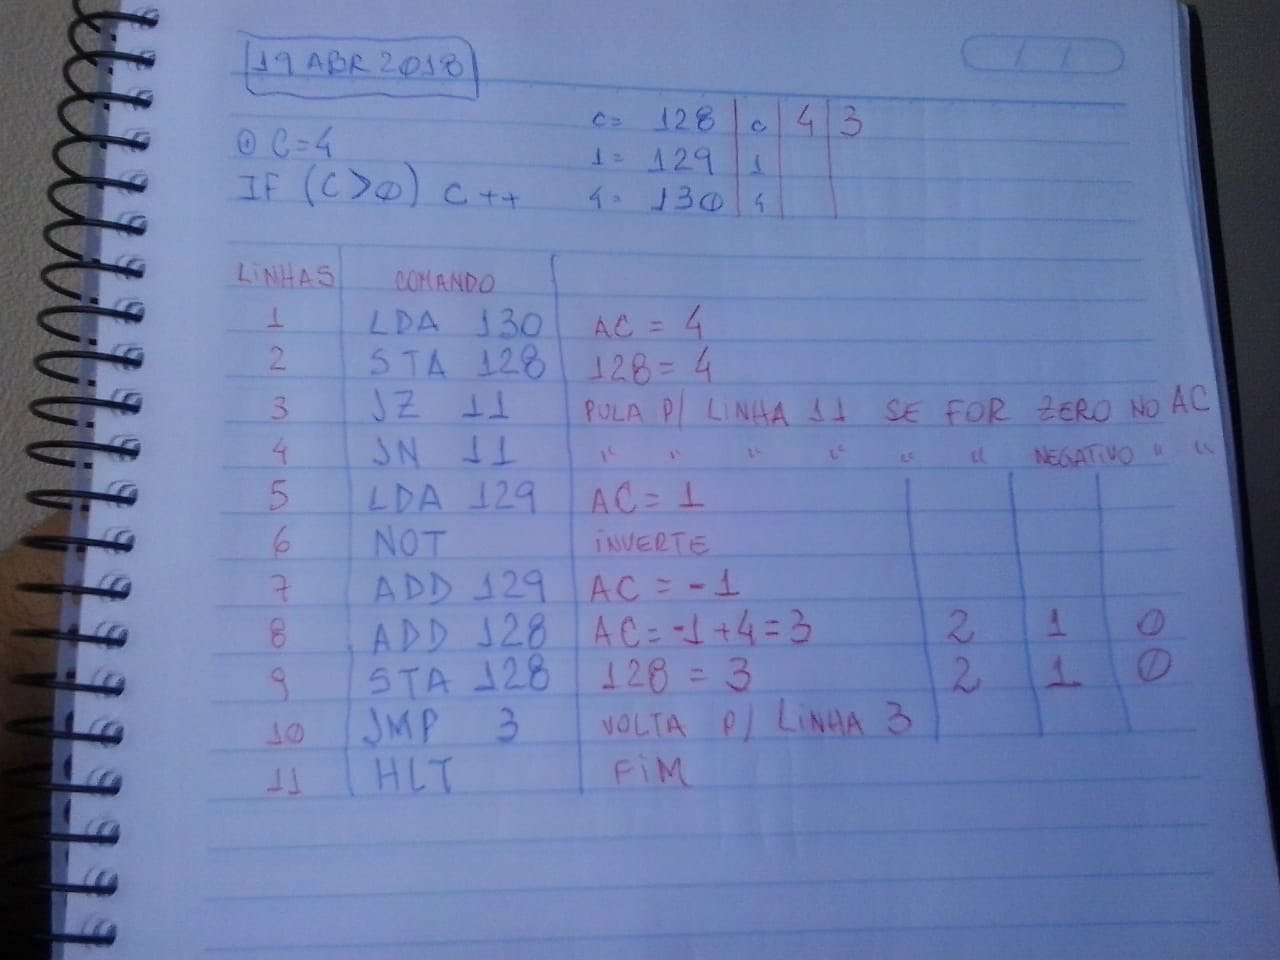 19 ABR 2018
① C=4
IF (C>0) C++
C= 128 C 4 3
1= 129 1
4= 130 4
LINHAS COMANDO
1 LDA 130 AC = 4
2 STA 128 128 = 4
3 JZ 11 PULA P/ LINHA 11 SE FOR ZERO NO AC
4 JN 11 " " " " " " NEGATIVO " "
5 LDA 129 AC = 1
6 NOT INVERTE
7 ADD 129 AC = -1
8 ADD 128 AC = -1+4=3 2 1 0
9 STA 128 128 = 3 2 1 0
10 JMP 3 VOLTA P/ LINHA 3
11 HLT FIM